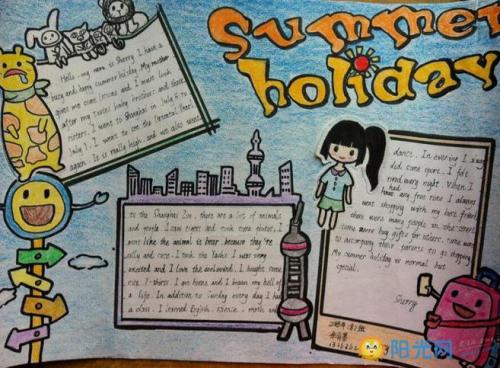 Summer
holiday
Hello, my name is Sherry. I have a
busy and happy summer holiday. My mother
give me some lessons and I must look
after my twins baby brother and three
sisters. I went to Shanghai in July 5 to
July 7. I went to see the Oriental Pearl
again. It is really high and we also went
to the Shanghai Zoo, there are a lot of animals
and people. I saw tigers and took some photos. I
more like the animal is bear because they're
silly and cute. I took the I was very
excited and I like the I bought some
nice T-shirts. I am and I began my
a life. In addition to Sunday every day I had
a class. I learned English, science, math and
dance. In evening I always
did some sport. I felt
every night. When I
had any free time I always
went shopping with my best friend
there were many people in
some buy gifts for others, some want
to accompany their parents to go shopping.
My summer holiday is normal but
special.
Sherry
阳光网